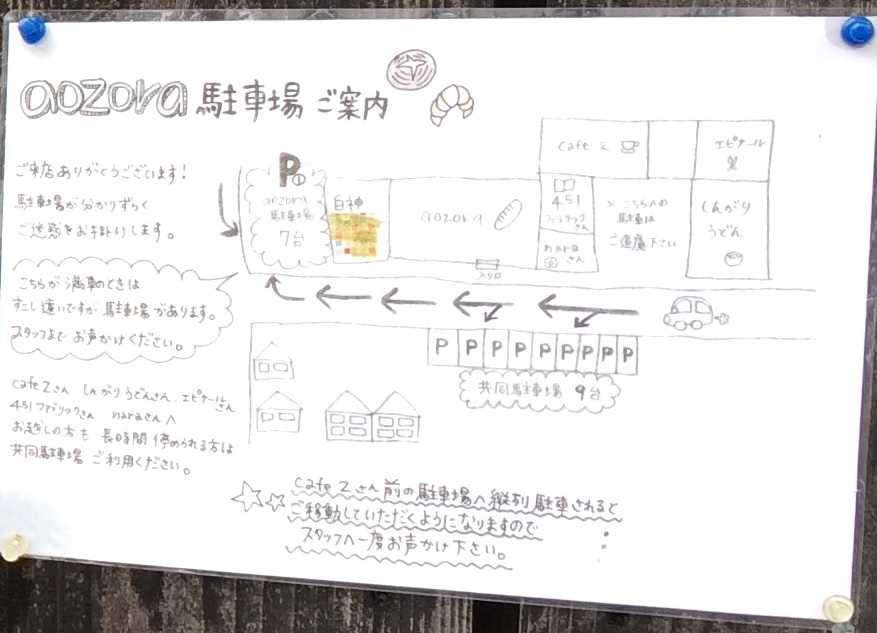 aozora 駐車場 ご案内
ご来店ありがとうございます!
駐車場が分かりずらく
ご迷惑をお掛けします。
こちらが満車のときは
すこし遠いですが駐車場があります。
スタッフまでお声かけください。
cafe Zさん しんがりうどんさん、エピナールさん
451ファブリックさん naraさんへ
お越しの方も 長時間停められる方は
共同駐車場 ご利用ください。
P
aozora
駐車場
7台
白神
aozora
入り口
cafe Z
エピナール
451
ファブリックさん
naraさん
×こちらへの
駐車は
ご遠慮下さい
しんがり
うどん
P P P P P P P P
共同駐車場 9台
cafe Zさん前の駐車場へ縦列駐車されると
ご移動していただくようになりますので
スタッフへ一度お声かけ下さい。